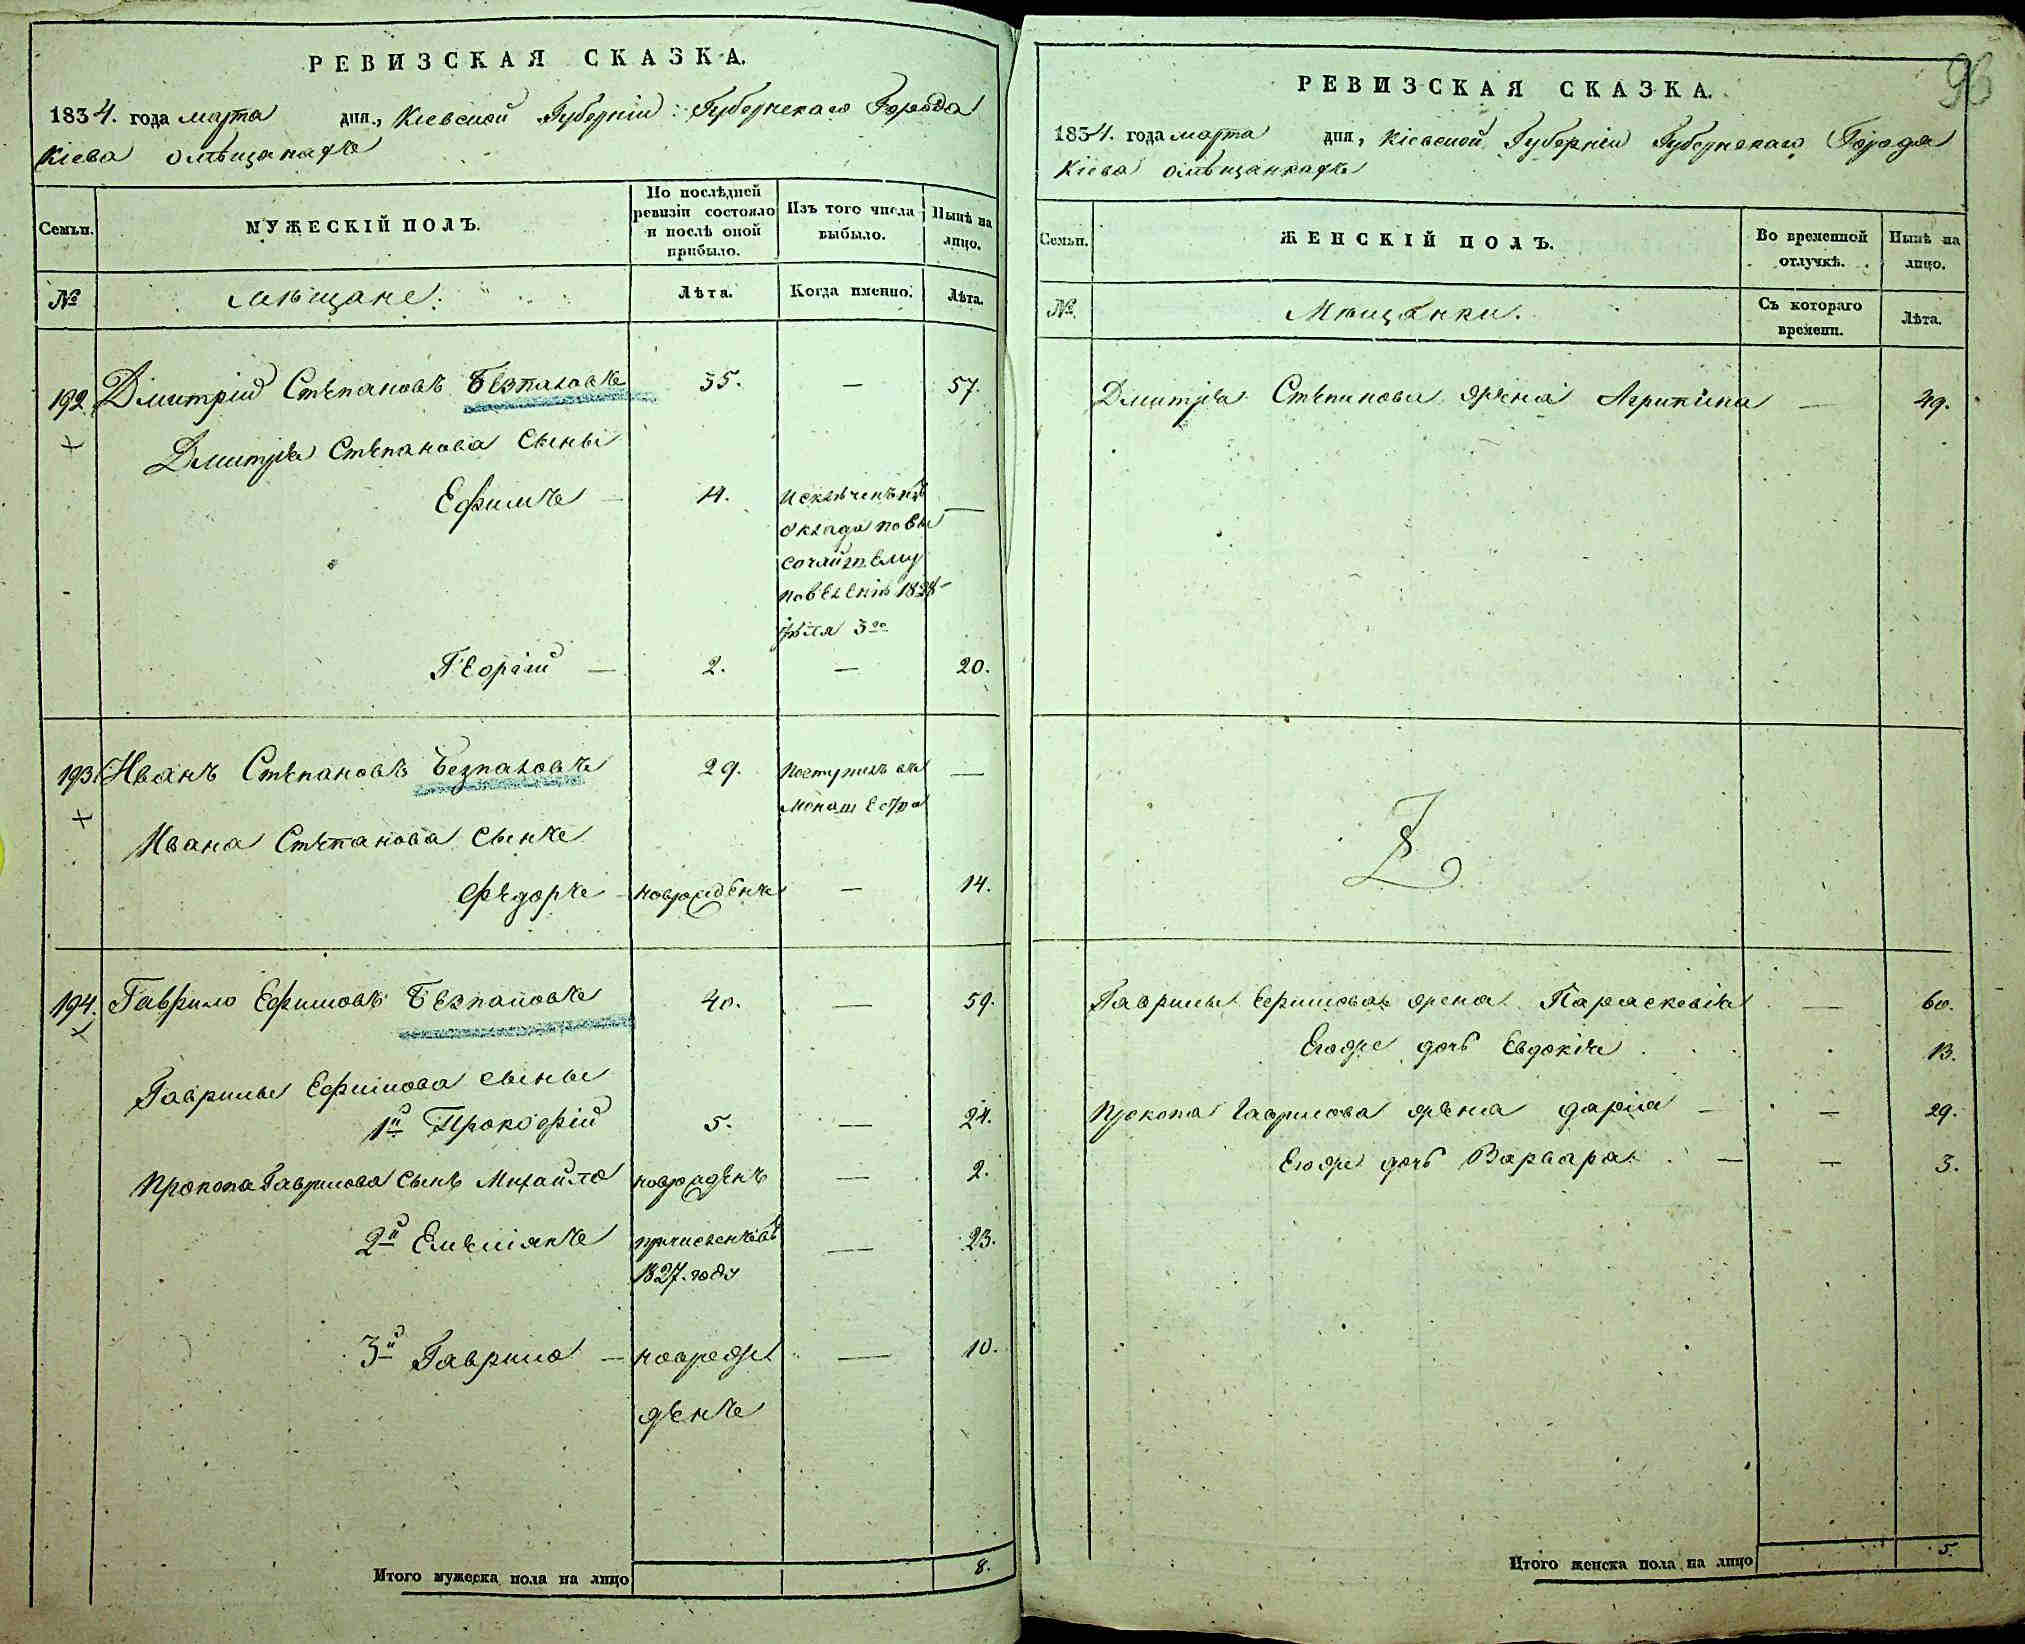 РЕВИЗСКАЯ СКАЗКА.
1834. года марта дня, Кіевской Губерніи Губернскаго Города
Кіева омѣщанахъ
Семьи. МУЖЕСКІЙ ПОЛЪ. По послѣдней ревизіи состояло и послѣ оной прибыло. Изъ того числа выбыло. Нынѣ на лицо.
№ мѣщане. Лѣта. Когда именно. Лѣта.
192 Дмитрій Степановъ Безпаловъ 35. — 57.
Дмитрія Степанова сыны
Ефимъ — 14. Исключенъ изъ —
оклада по вы
сочайшему
повеленію 1828
3го
Георгій — 2. — 20.
193 Иванъ Степановъ Безпаловъ 29. Поступилъ въ —
монастырь
Ивана Степанова сынъ
Федоръ новорожденъ — 14.
194. Гаврило Ефимовъ Безпаловъ 40. — 59.
Гаврилы Ефимова сыны
1й Прокофій 5. — 24.
Прокопа Гаврилова сынъ Михайло новорожденъ — 2.
2й Емеліянъ причисленъ въ — 23.
1827. году
3й Гаврило — новорож — 10.
денъ
Итого мужеска пола на лицо 8.
93
РЕВИЗСКАЯ СКАЗКА.
1834. года марта дня, Кіевской Губерніи Губернскаго Города
Кіева омѣщанкахъ
Семьи. ЖЕНСКІЙ ПОЛЪ. Во временной отлучкѣ. Нынѣ на лицо.
№ Мѣщанки. Съ котораго времени. Лѣта.
Дмитрія Степанова жена Агрипина — 49.
Гаврилы Ефимова жена Параскевія — 60.
Егоже дочь Евдокія 13.
Прокопа Гаврилова жена Дарія — — 29.
Егоже дочь Варвара — — 3.
Итого женска пола на лицо 5.